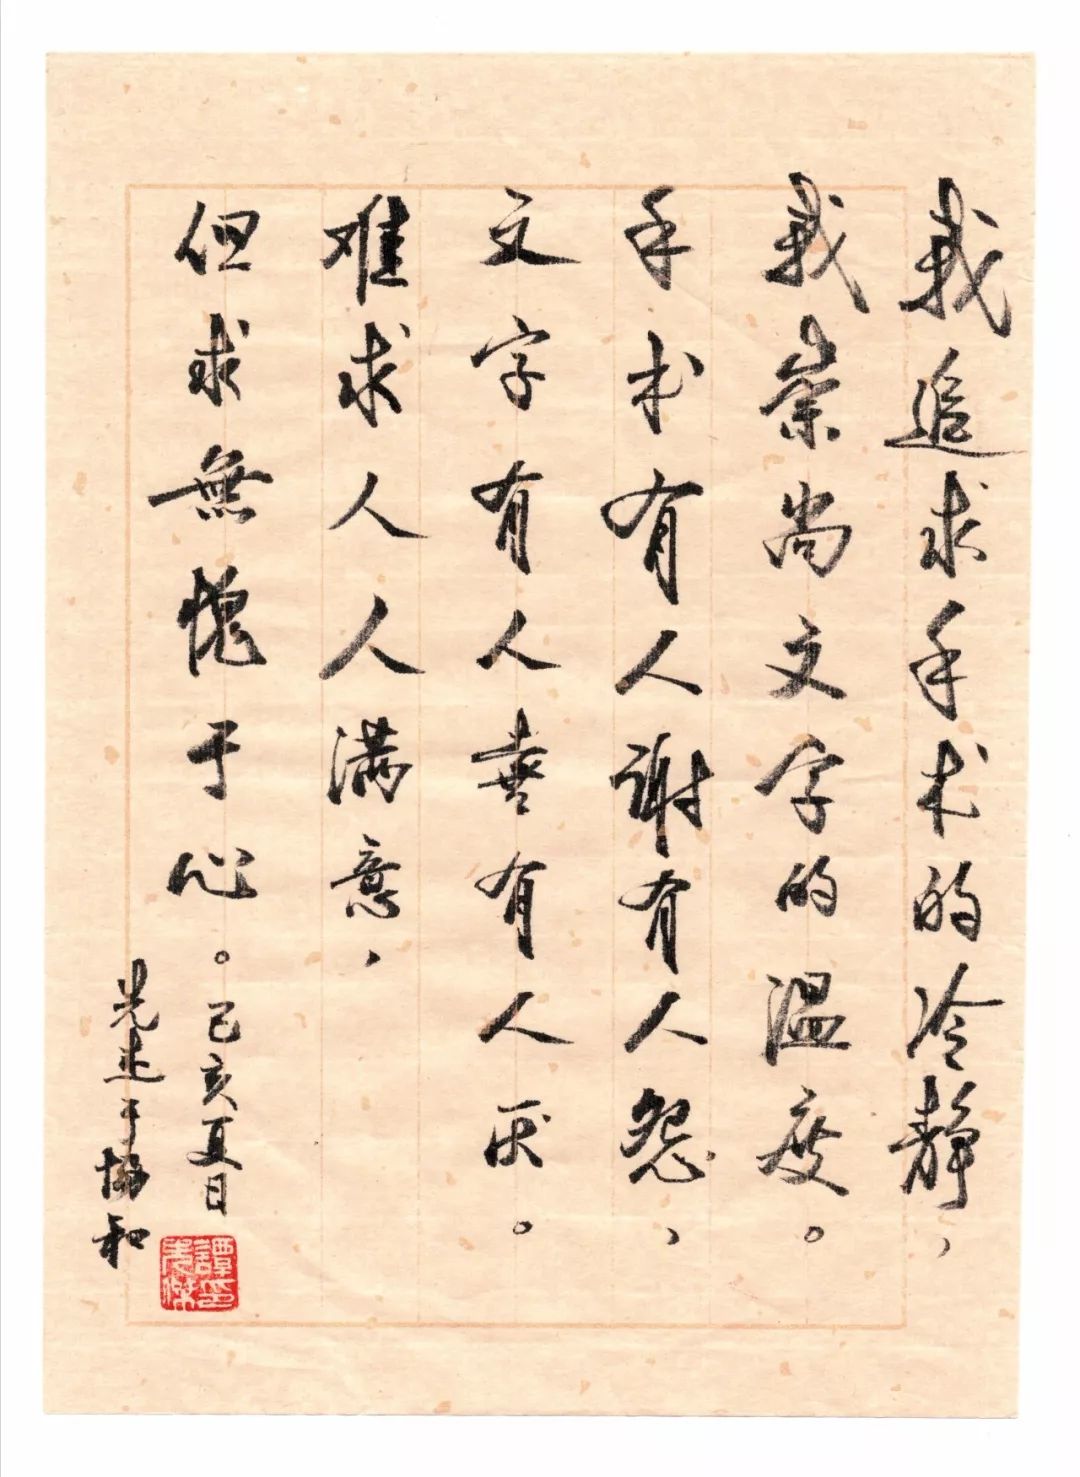 我追求手术的冷静、
我崇尚文字的温度。
手术有人谢有人怨、
文字有人喜有人厌。
难求人人满意、
但求無愧于心。己亥夏日
先进于協和
譚印
先傑